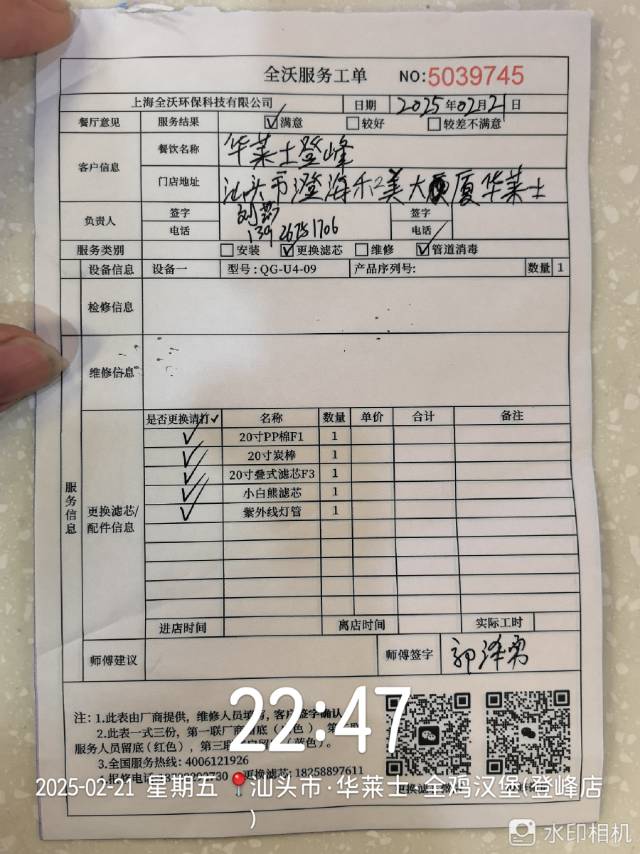 全沃服务工单 NO:5039745
上海全沃环保科技有限公司 日期 2025年02月21日
餐厅意见 服务结果 ☑满意 □较好 □较差不满意
客户信息 餐饮名称 华莱士登峰
门店地址 汕头市澄海乐美大厦华莱士
负责人 签字 签字
电话 13926751706 电话
服务类别 □安装 ☑更换滤芯 □维修 ☑管道消毒
设备信息 设备一 型号:QG-U4-09 产品序列号: 数量 1
服务信息
检修信息
维修信息
更换滤芯/配件信息
是否更换请打✓ 名称 数量 单价 合计 备注
✓ 20寸PP棉F1 1
✓ 20寸炭棒 1
✓ 20寸叠式滤芯F3 1
✓ 小白熊滤芯 1
✓ 紫外线灯管 1
进店时间 离店时间 实际工时
师傅建议 师傅签字 郭泽勇
注:1.此表由厂商提供，维修人员填写，客户签字确认
2.此表一式三份，第一联厂商留底
服务人员留底(红色)，第三联 (蓝色)。
3.全国服务热线: 4006121926
更换滤芯: 18258897611
22:47
2025-02-21 星期五 汕头市·华莱士·全鸡汉堡(登峰店
)
水印相机